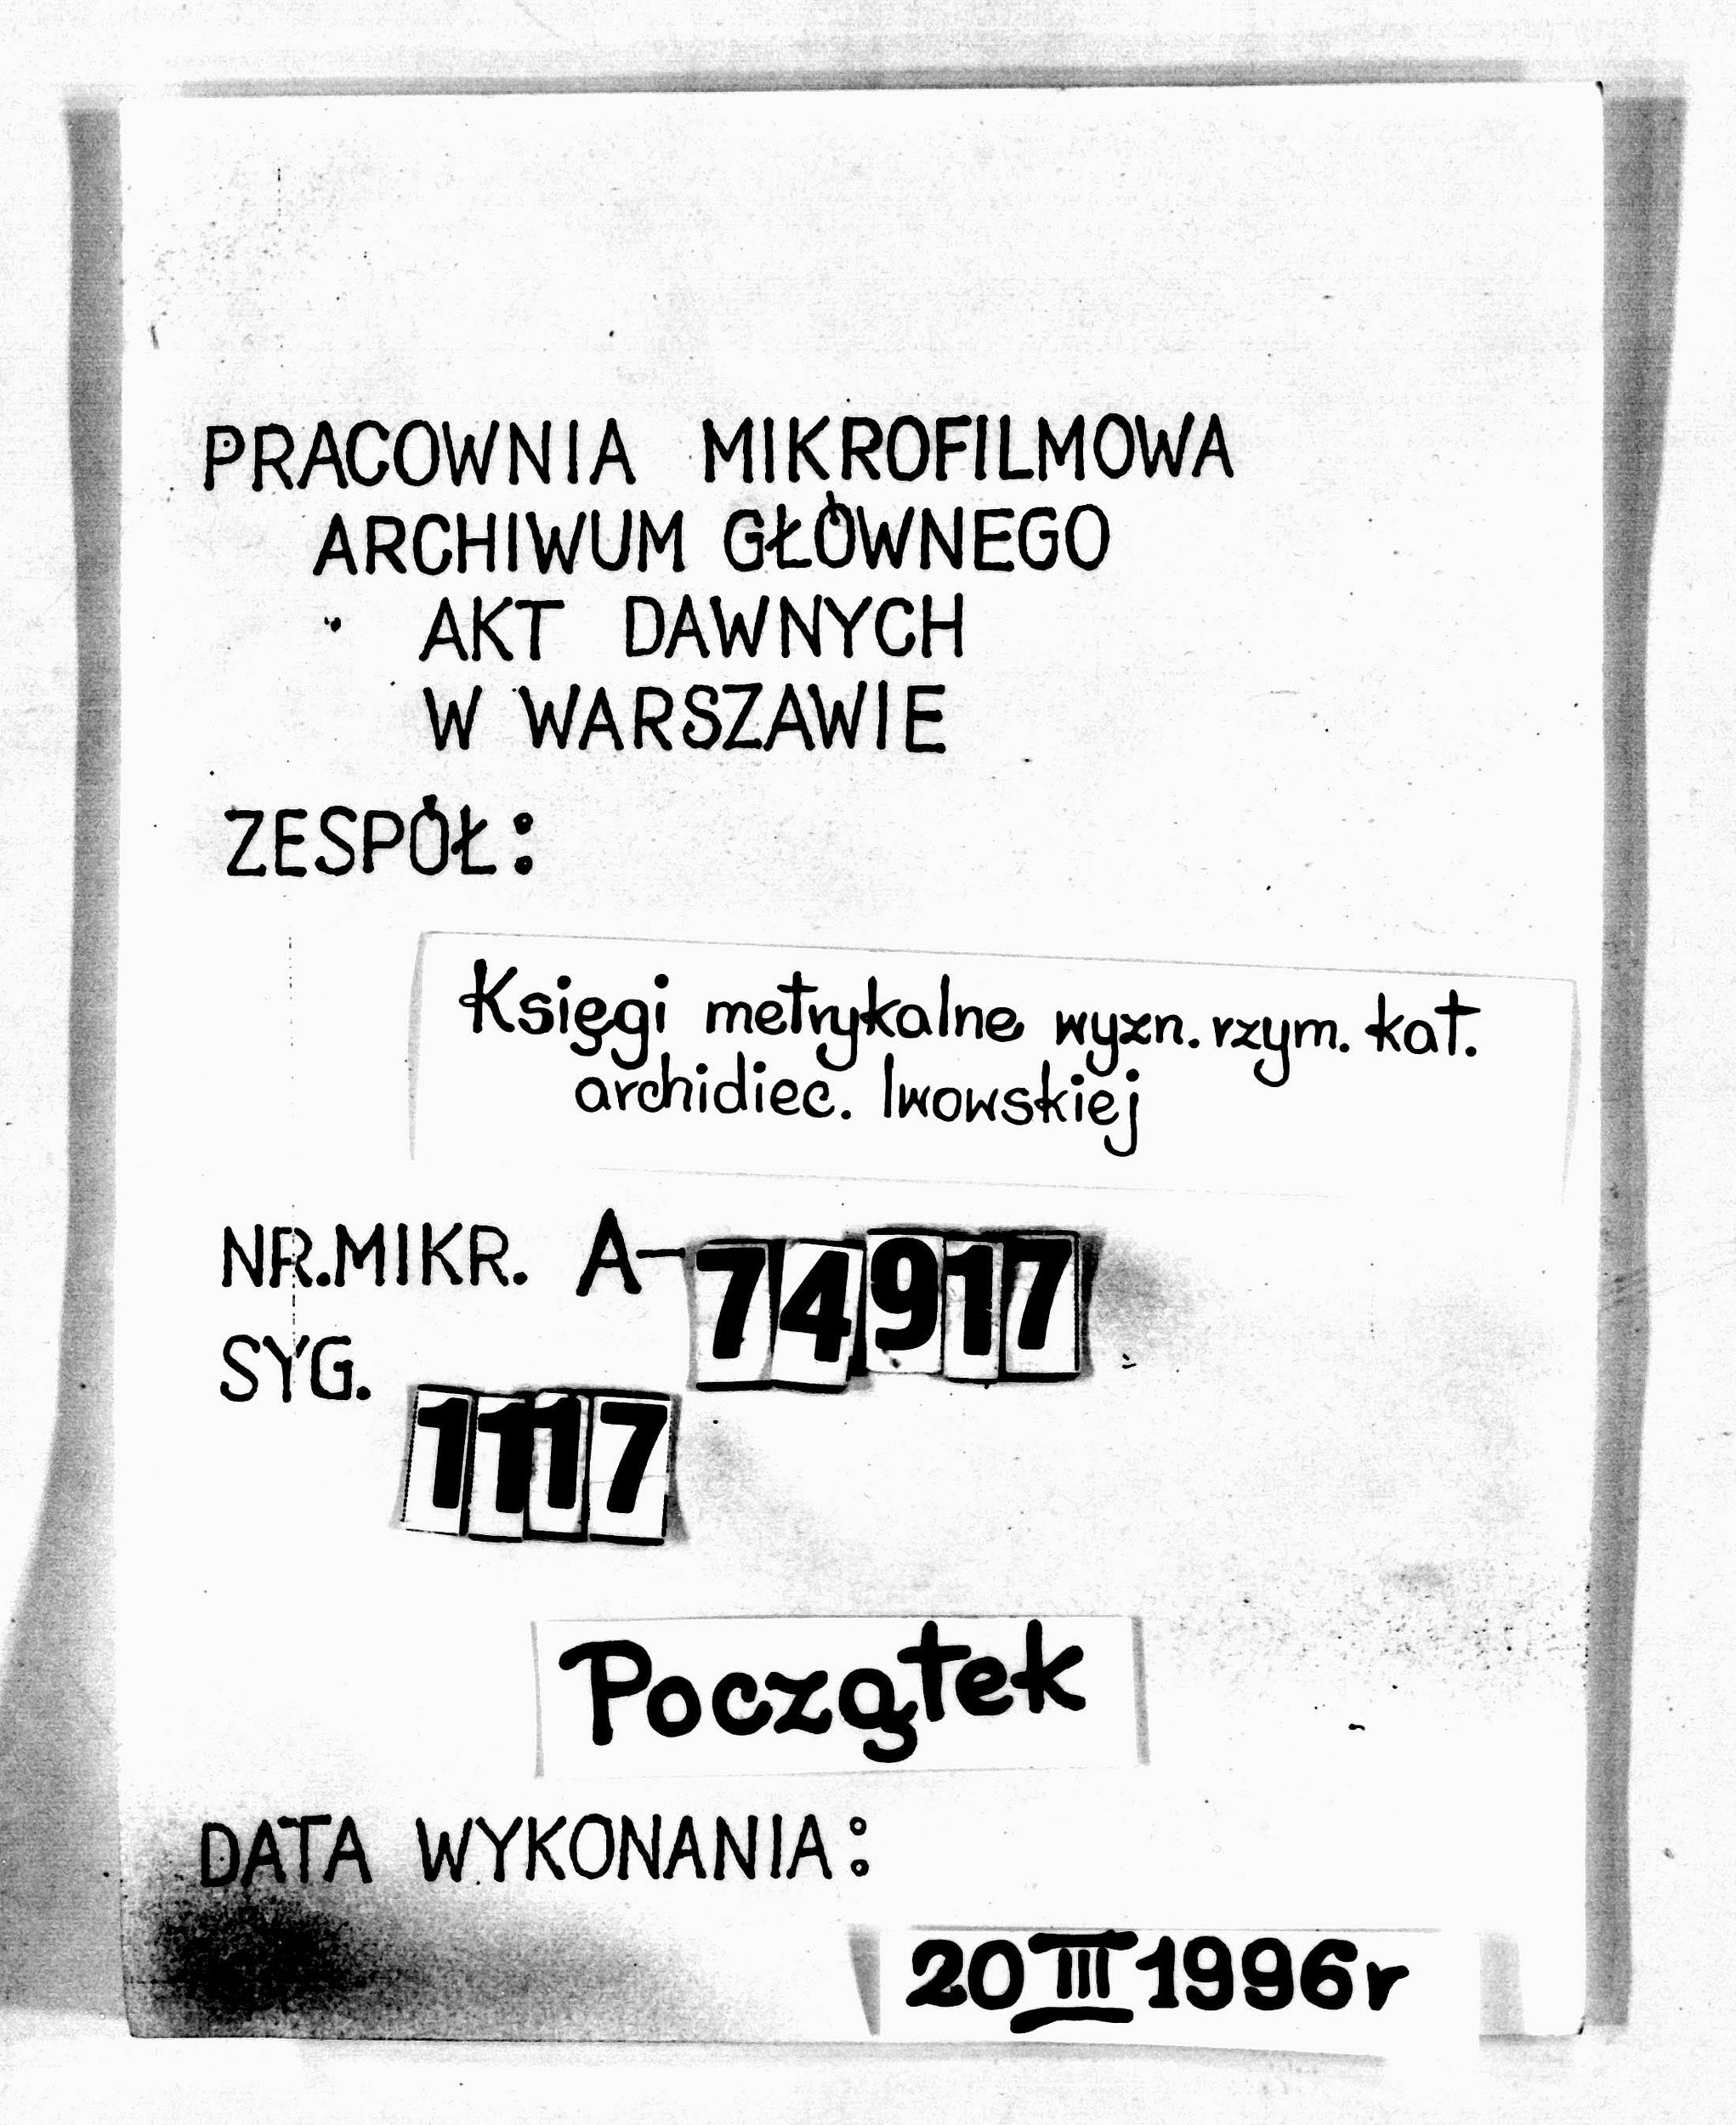 PRACOWNIA MIKROFILMOWA
ARCHIWUM GŁÓWNEGO
AKT DAWNYCH
W WARSZAWIE
ZESPÓŁ:
Księgi metrykalne wyzn. rzym. kat.
archidiec. lwowskiej
NR.MIKR. A-74917
SYG.
1117
Początek
DATA WYKONANIA:
20 III 1996r